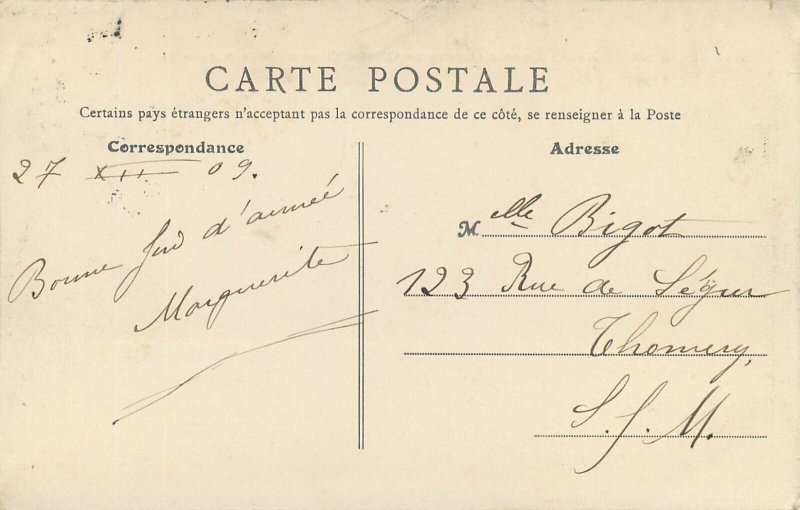 CARTE POSTALE
Certains pays étrangers n'acceptant pas la correspondance de ce côté, se renseigner à la Poste
Correspondance
27 XII 09.
Bonne fin d'année
Marguerite
Adresse
Melle Bigot
123 Rue de Ségur
Thomery,
S. & M.